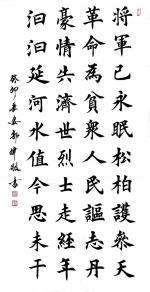 將軍已永眠松柏護參天
革命為貧衆人民謳志丹
豪情共濟世烈士走經年
汩汩延河水值今思未干
癸卯